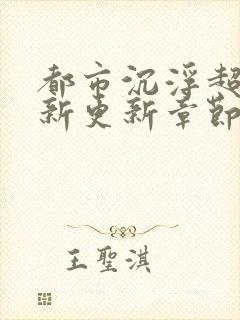 都市沉浮超
新更新章節
王聖淇